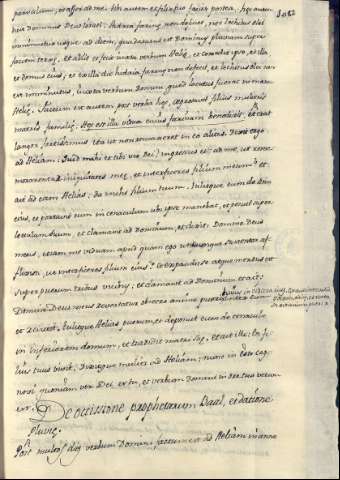 panem, et affer ad me: tibi autem et filio tuo facies postea, hęc autem
dicit Dominus Deus Israel: Hidria farinę non deficiet, nec lechitus olei
imminuetur usque ad diem, qua daturus est Dominus pluviam super
faciem terrę, et abiit et fecit iuxta verbum Helię, et comedit ipse, et illa
et domus eius; et ex illa die hidria farinę non defecit, et lechitus olei non
est imminutus, iuxta verbum Domini quod locutus fuerat in manu
Helię. Factum est autem post verba hęc, ęgrotavit filius mulieris
matris familię
languor fortissimus ita ut non remaneret in eo alitus. Dixit ergo
ad Heliam: Quid mihi et tibi vir Dei? ingressus es ad me, ut reme
morarentur iniquitates meę, et interficeres filium meum? et
ait ad eam Helias: da mihi filium tuum. Tulitque eum de sinu
eius, et portavit eum in cenaculum ubi ipse manebat, et posuit super
lectulum suum, et clamavit ad Dominum, et dixit: Domine Deus
meus, etiam ne viduam apud quam ego utcumque sustentor af
flixisti, ut interficeres filium eius? et expandit se atque mensus est
super puerum tribus vicibus, et clamavit ad Dominum et ait:
Domine Deus meus revertatur obsecro anima pueri
et revixit. tulitque Helias puerum, et deposuit eum de cenaculo
in inferiorem domum, et tradidit matri suę, et ait illi: En fi
lius tuus vivit. Dixitque mulier ad Heliam; nunc in isto cog
novi quoniam vir Dei es tu, et verbum Domini in ore tuo verum
est.
De occissione prophetarum Baal, et datione
pluvię.
Post multos dies verbum Domini factum est ad Heliam in anno